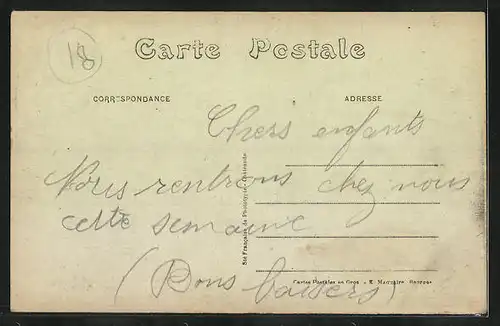 18
Carte Postale
CORRESPONDANCE
ADRESSE
Chers enfants
Nous rentrons chez nous
cette semaine
(Bons baisers)
Sté Française de Phototypie
Cartes Postales en Gros